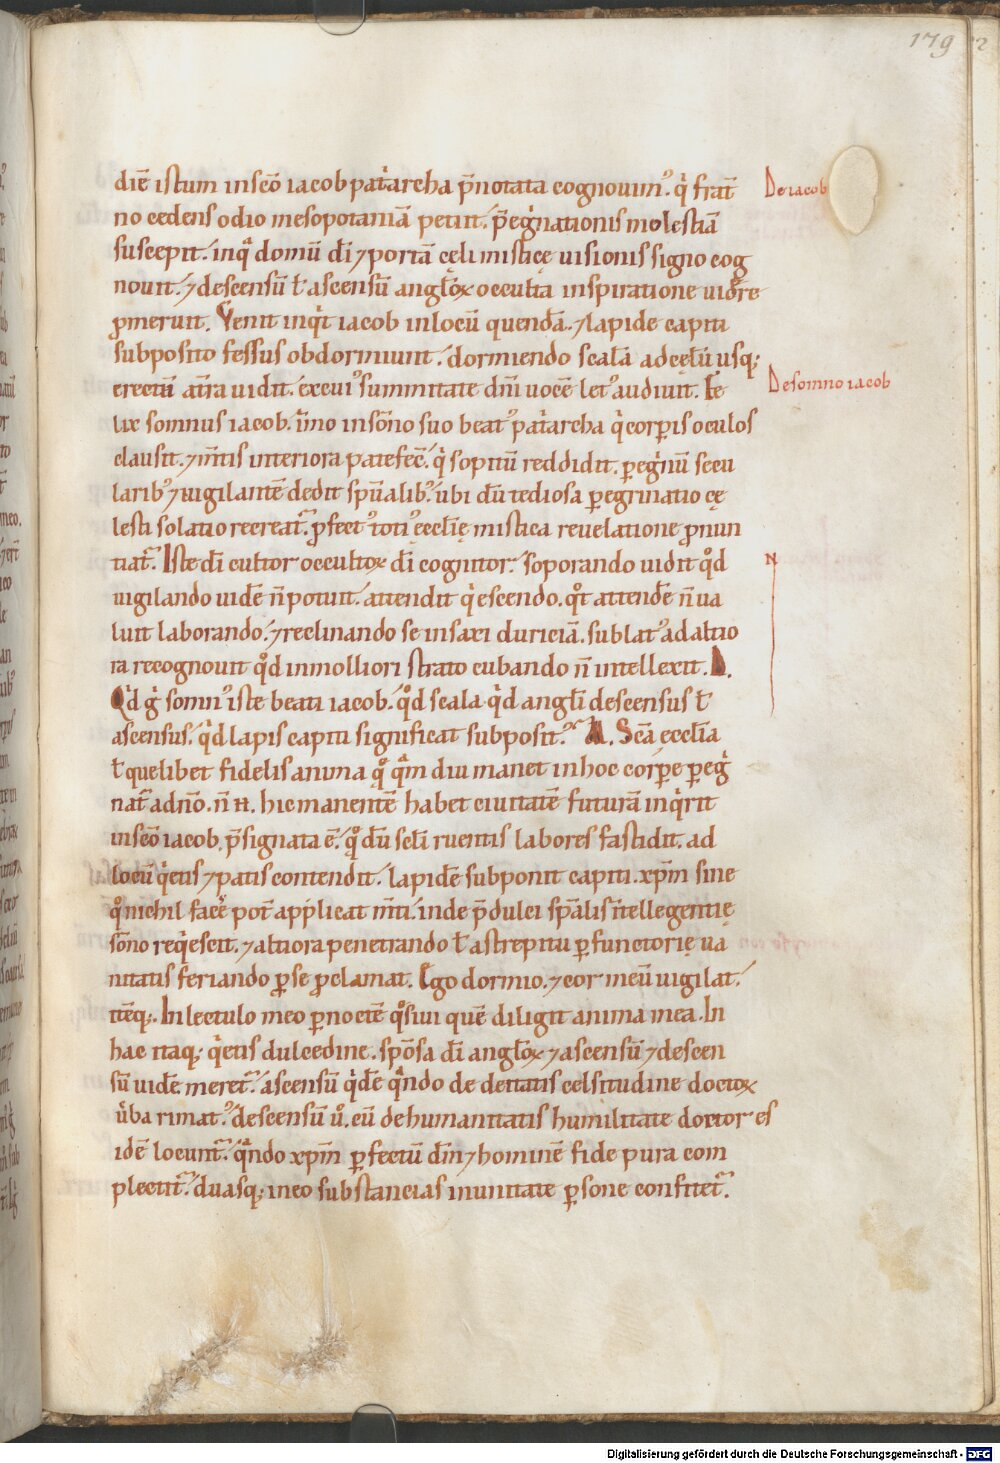 179
diē istum inscō iacob pat̄archa p̄notata cognouim᾽. q̇ frat̄
De iacob
no cedens odio mesopotamiā petiit. p̄eg̓nationis molestiā
suscepit. inq̇ domū dī ⁊ portā cęli misticę uisionis signo cog
nouit. ⁊ descensū ł ascensū angłoꝝ occulta inspiratione uidēre
ꝓmeruit. Venit inq̇t iacob inlocū quendā. ⁊ lapide capiti
subposito fessus obdormiuit. dormiendo scalā adcęlū usq;
erectū at̄ra uidit. excui᾽ summitate dn̄i uocē let᾽ audiuit. Fe
De somno iacob
lix somnus iacob. īmo insōno suo beat᾽ pat̄archa q̇ corꝑis oculos
clausit. ⁊ m̄tis interiora patefec̄. q̇ sopitū reddidit. ꝑeg̓nū secu
larib᾽ ⁊ uigilantē dedit spūalib᾽. ubi dū tediosa ꝑegrinatio cę
lesti solatio recreat᷒. ꝓfect᾽ toti᾽ ęcclię mistica reuelatione ꝓnun
tiat᷒. Iste dī cultor occultoꝝ dī cognitor. soporando uidit qͦd
N
uigilando uidē n̄ potuit. attendit q̇escendo. qͦt attendē n̄ ua
luit laborando. ⁊ reclinando se insaxi duriciā. sublat᾽ adaltio
ra recognouit qͦd inmolliori strato cubando n̄ intellexit. D.
Qͥd g̊ somn᾽ iste beati iacob. qͦd scala qͥd angłi descensus ł
ascensus. qͥd lapis capiti significat subposit᾽. M. Scā ecclīa
ł quelibet fidelis anima qͦ qͣm diu manet inhoc corꝑe ꝑeg̓
nat᷒ adn̄o. n̄ H. hic manentē habet ciuitatē futurā inq̇rit
inscō iacob p̄signata ē. qͦ dū scłi ruentis labores fastidit. ad
locū q̇etis ⁊ patis contendit. lapidē subponit capiti. xp̄m sine
qͦ nichil facē pot̄ applicat m̄ti. inde p̄dulci spālis īntellegentię
sōno req̇escit. ⁊ altiora penetrando ł astrepitu ꝑfunctorię ua
nitatis feriando ꝑ se ꝓclamat. Ego dormio. ⁊ cor meū uigilat.
itēq;. In lectulo meo ꝑ noctē qͦsiui quē diligit anima mea. In
hac itaq; q̇etis dulcedine. spōsa dī angłoꝝ ⁊ ascensū ⁊ descen
sū uidē meret᷒. ascensū qͥdē qͣndo de deitatis celsitudine doctoꝝ
ūba rimat᷒. descensū ů. cū de humanitatis humilitate doctores
idē locunt᷒. qͣndo xp̄m ꝑfectū dm̄ ⁊ hominē fide pura com
plectit᷒. duasq; ineo substancias inunitate ꝑsone confitet᷒.
Digitalisierung gefördert durch die Deutsche Forschungsgemeinschaft - DFG